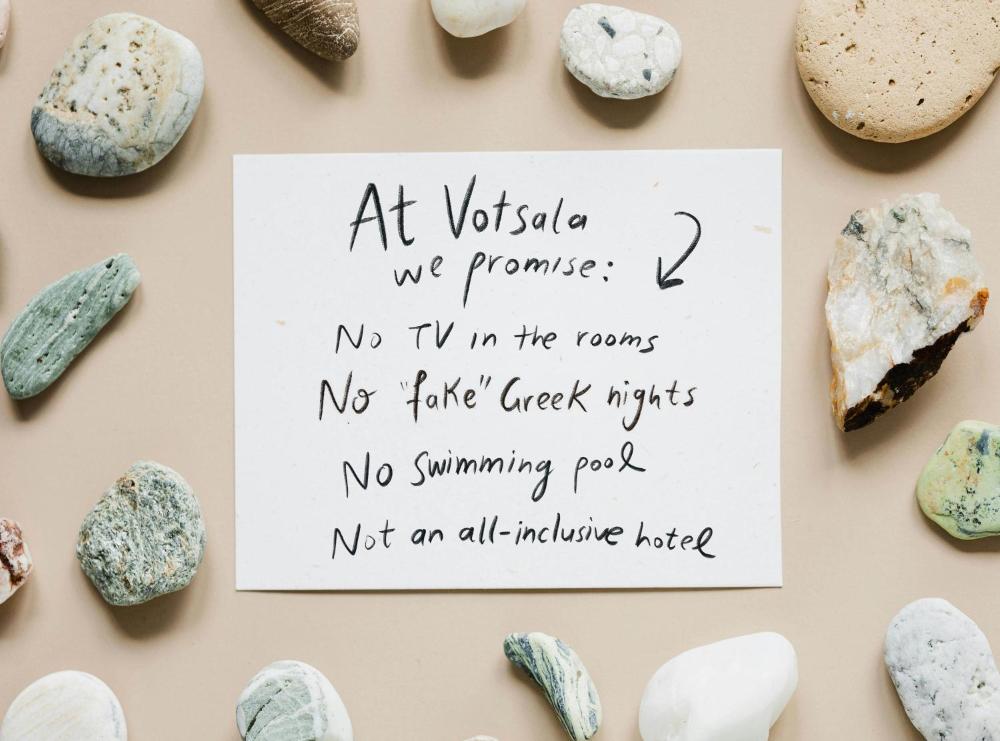 At Votsala
we promise:
No TV in the rooms
No "fake" Greek nights
No swimming pool
Not an all-inclusive hotel